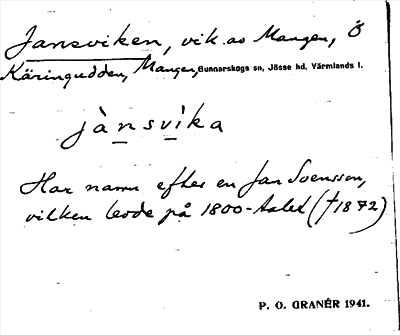 Jansviken, vik av Mangen, Ö
Käringudden, Mangen, Gunnarskogs sn, Jösse hd, Värmlands l.
jànsvìka
Har namn efter en Jan Svensson,
vilken levde på 1800-talet (†1872)
P. O. GRANÉR 1941.